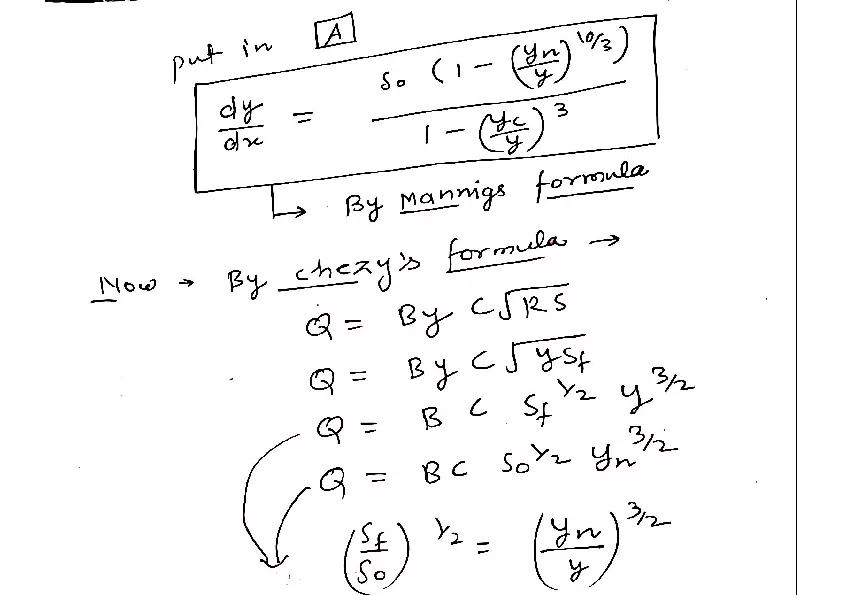 put in [A]
dy/dx = So (1 - (yn/y)^10/3) / 1 - (yc/y)^3
↳ By Mannigs formula
Now → By chezy's formula →
Q = By C√RS
Q = By C√ySf
Q = B C Sf^1/2 y^3/2
Q = BC So^1/2 yn^3/2
(Sf/So)^1/2 = (yn/y)^3/2